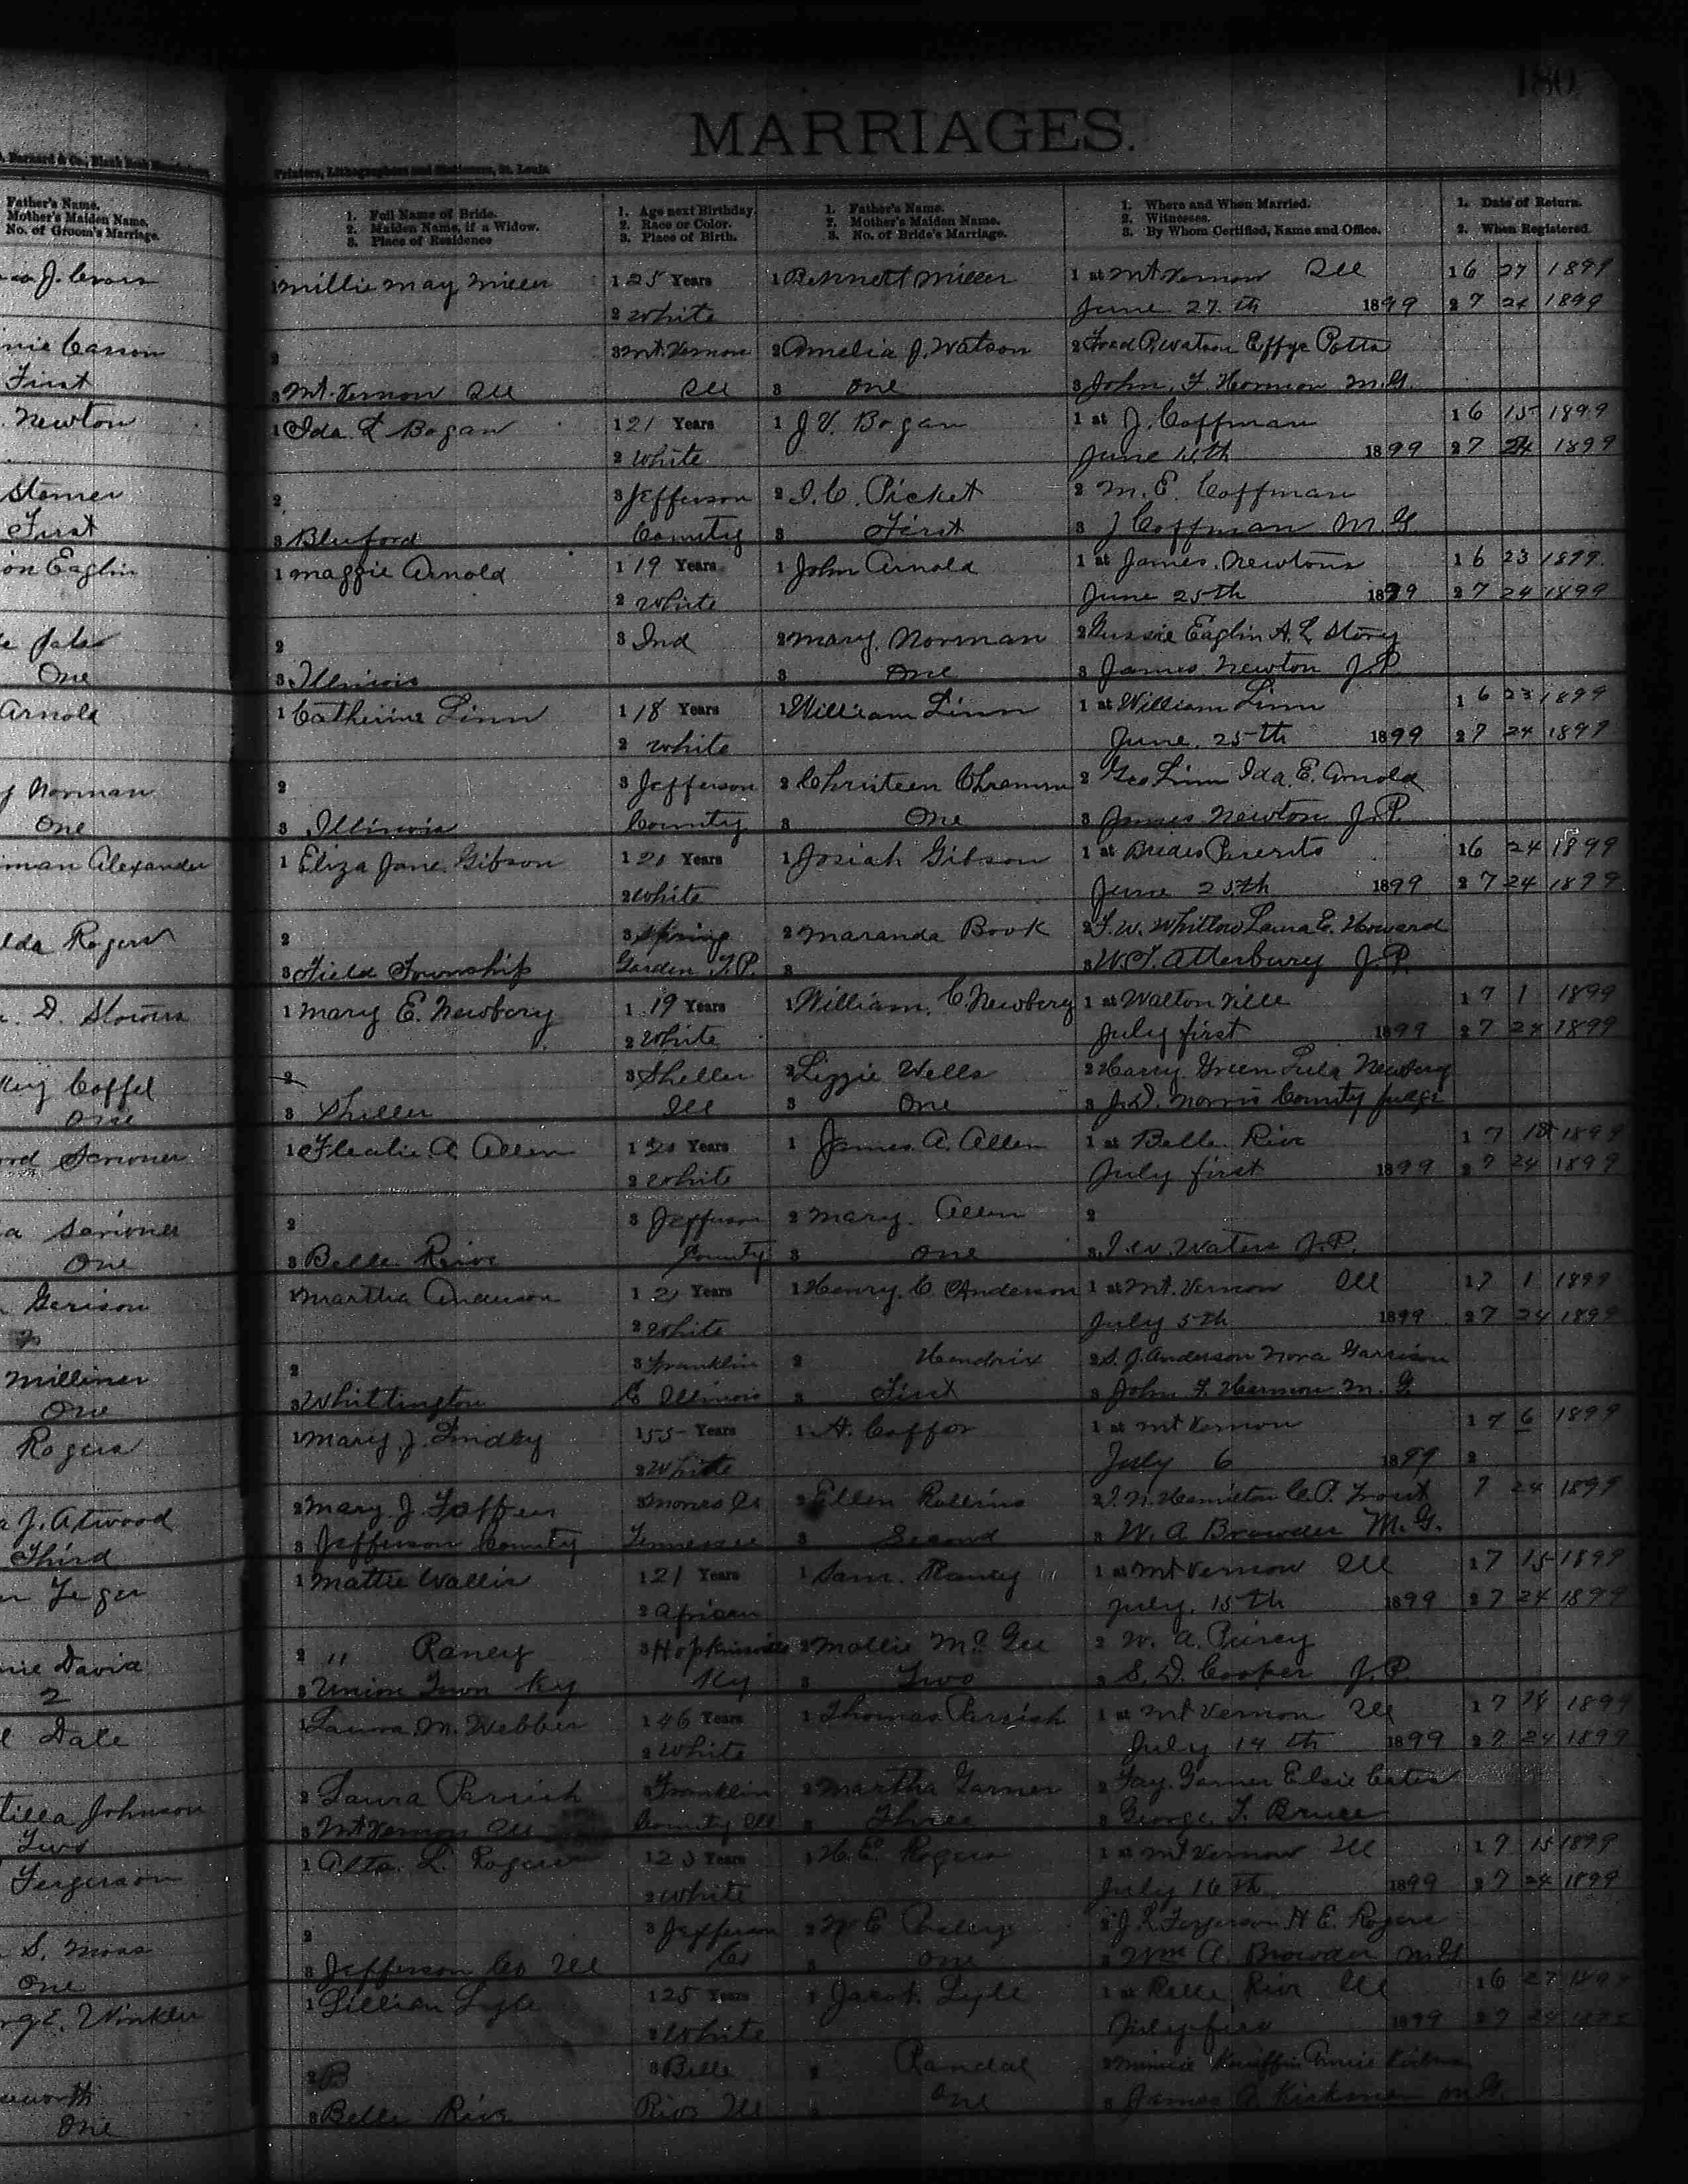 180
MARRIAGES.
Barnard & Co., Blank Book
Printers, Lithographers and Stationers, St. Louis
Father's Name.
Mother's Maiden Name.
No. of Groom's Marriage.
1. Full Name of Bride.
2. Maiden Name, if a Widow.
3. Place of Residence
1. Age next Birthday.
2. Race or Color.
3. Place of Birth.
1. Father's Name.
2. Mother's Maiden Name.
3. No. of Bride's Marriage.
1. Where and When Married.
2. Witnesses.
3. By Whom Certified, Name and Office.
1. Date of Return.
2. When Registered.
1 Millie May Miller 1 25 Years 1 Bennett Miller 1 at Mt Vernon Ill 1 6 27 1899
2 White June 27th 1899 2 7 24 1899
Carson
2 3 Mt. Vernon 2 Amelia J. Watson 2 Effye Potts
First
3 Mt. Vernon Ill Ill 3 One 3 John F. Harmon M.G.
Newton
1 Ida L Bogan 1 21 Years 1 J. V. Bogan 1 at J. Coffman 1 6 15 1899
2 White June 1899 2 7 24 1899
2 3 Jefferson 2 I. C. Picket 2 M. E. Coffman
First
3 Bluford County 3 First 3 J Coffman M.G
Eaglin
1 Maggie Arnold 1 19 Years 1 John Arnold 1 at James Newtons 1 6 23 1899
2 White June 25th 1899 2 7 24 1899
2 3 Ind 2 Mary Norman 2 Gussie Eaglin A. L Story
One
3 Illinois 3 One 3 James Newton J.P.
Arnold
1 Catherine Linn 1 18 Years 1 William Linn 1 at William Linn 1 6 23 1899
2 White June 25th 1899 2 7 24 1899
Norman
2 3 Jefferson 2 Christeen 2 Geo Linn Ida E. Arnold
One
3 Illinois County 3 One 3 James Newton J.P.
Alexander
1 Eliza Jane Gibson 1 Years 1 Josiah Gibson 1 at Brides Parents 1 6 24 1899
2 White June 25th 1899 2 7 24 1899
Rogers
2 3 Spring 2 Maranda Book 2 Whitlow Laura E. Howard
3 Field Township Garden T.P. 3 3 Atterbury J.P.
D.
1 Mary E. Newbery 1 19 Years 1 William C. Newbery 1 at Waltonville 1 7 1 1899
2 White July first 1899 2 7 24 1899
Coffel
2 3 Sheller 2 Lizzie Wells 2 Harry Green Lula Newbery
One
3 Sheller Ill 3 One 3 J.D. Morris County Judge
Scrivner
1 A Allen 1 Years 1 James A. Allen 1 at Belle Rive 1 7 1899
2 White July first 1899 2 7 24 1899
Scrivner
2 3 Jefferson 2 Mary Allen 2
One
3 Belle Rive County 3 One 3 Waters J.P.
Gerison
1 Martha Anderson 1 Years 1 Henry C Anderson 1 at Mt. Vernon Ill 1 7 1 1899
2 White July 5th 1899 2 7 24 1899
Milliner
2 3 Franklin 2 Hendrix 2 S. J. Anderson Nora Garrison
One
3 Whittington Illinois 3 First 3 John F. Harmon M.G.
Rogers
1 Mary J. Lindley 1 55 Years 1 A. 1 at Mt Vernon 1 7 6 1899
2 White July 6 1899 2
J. Atwood
2 Mary J. 3 Monroe Co 2 Ellen Rollins 2 Hamilton 7 24 1899
Third
3 Jefferson County Tennessee 3 Second 3 W. A Browder M.G.
1 Mattie Wallis 1 21 Years 1 Sam. Raney 1 at Mt Vernon Ill 1 7 15 1899
2 African July 15th 1899 2 7 24 1899
Davia
2 " Raney 3 Hopkinsville 2 Mollie McGee 2 W. A. Piercy
2
3 Union Town Ky Ky 3 Two 3 S. D. Cooper J.P.
Dale
1 Laura M. Webber 1 46 Years 1 Thomas Parrish 1 at Mt Vernon Ill 1 7 1899
2 White July 14th 1899 2 7 24 1899
Johnson
2 Laura Parrish 3 Franklin 2 Martha Garner 2 Fay Garner Elsie
Two
3 Mt Vernon Ill County Ill 3 Three 3 George T. Bruce
Fergerson
1 Alta L. Rogers 1 Years 1 Rogers 1 at Mt Vernon Ill 1 7 15 1899
2 White July 16th 1899 2 7 24 1899
S. Moss
2 3 Jefferson 2 2 Fergerson H E. Rogers
One
3 Jefferson Co Ill Co 3 One 3 Wm A. Browder M.G
Winkler
1 Lillian Lyle 1 25 Years 1 Jacob Lyle 1 at Belle Rive Ill 1 6 27 1899
2 White July 1899 2 7 24
2 B 3 Belle 2 Randal 2 Minnie
One
3 Belle Rive Rive Ill 3 One 3 James Kirkman M.G.